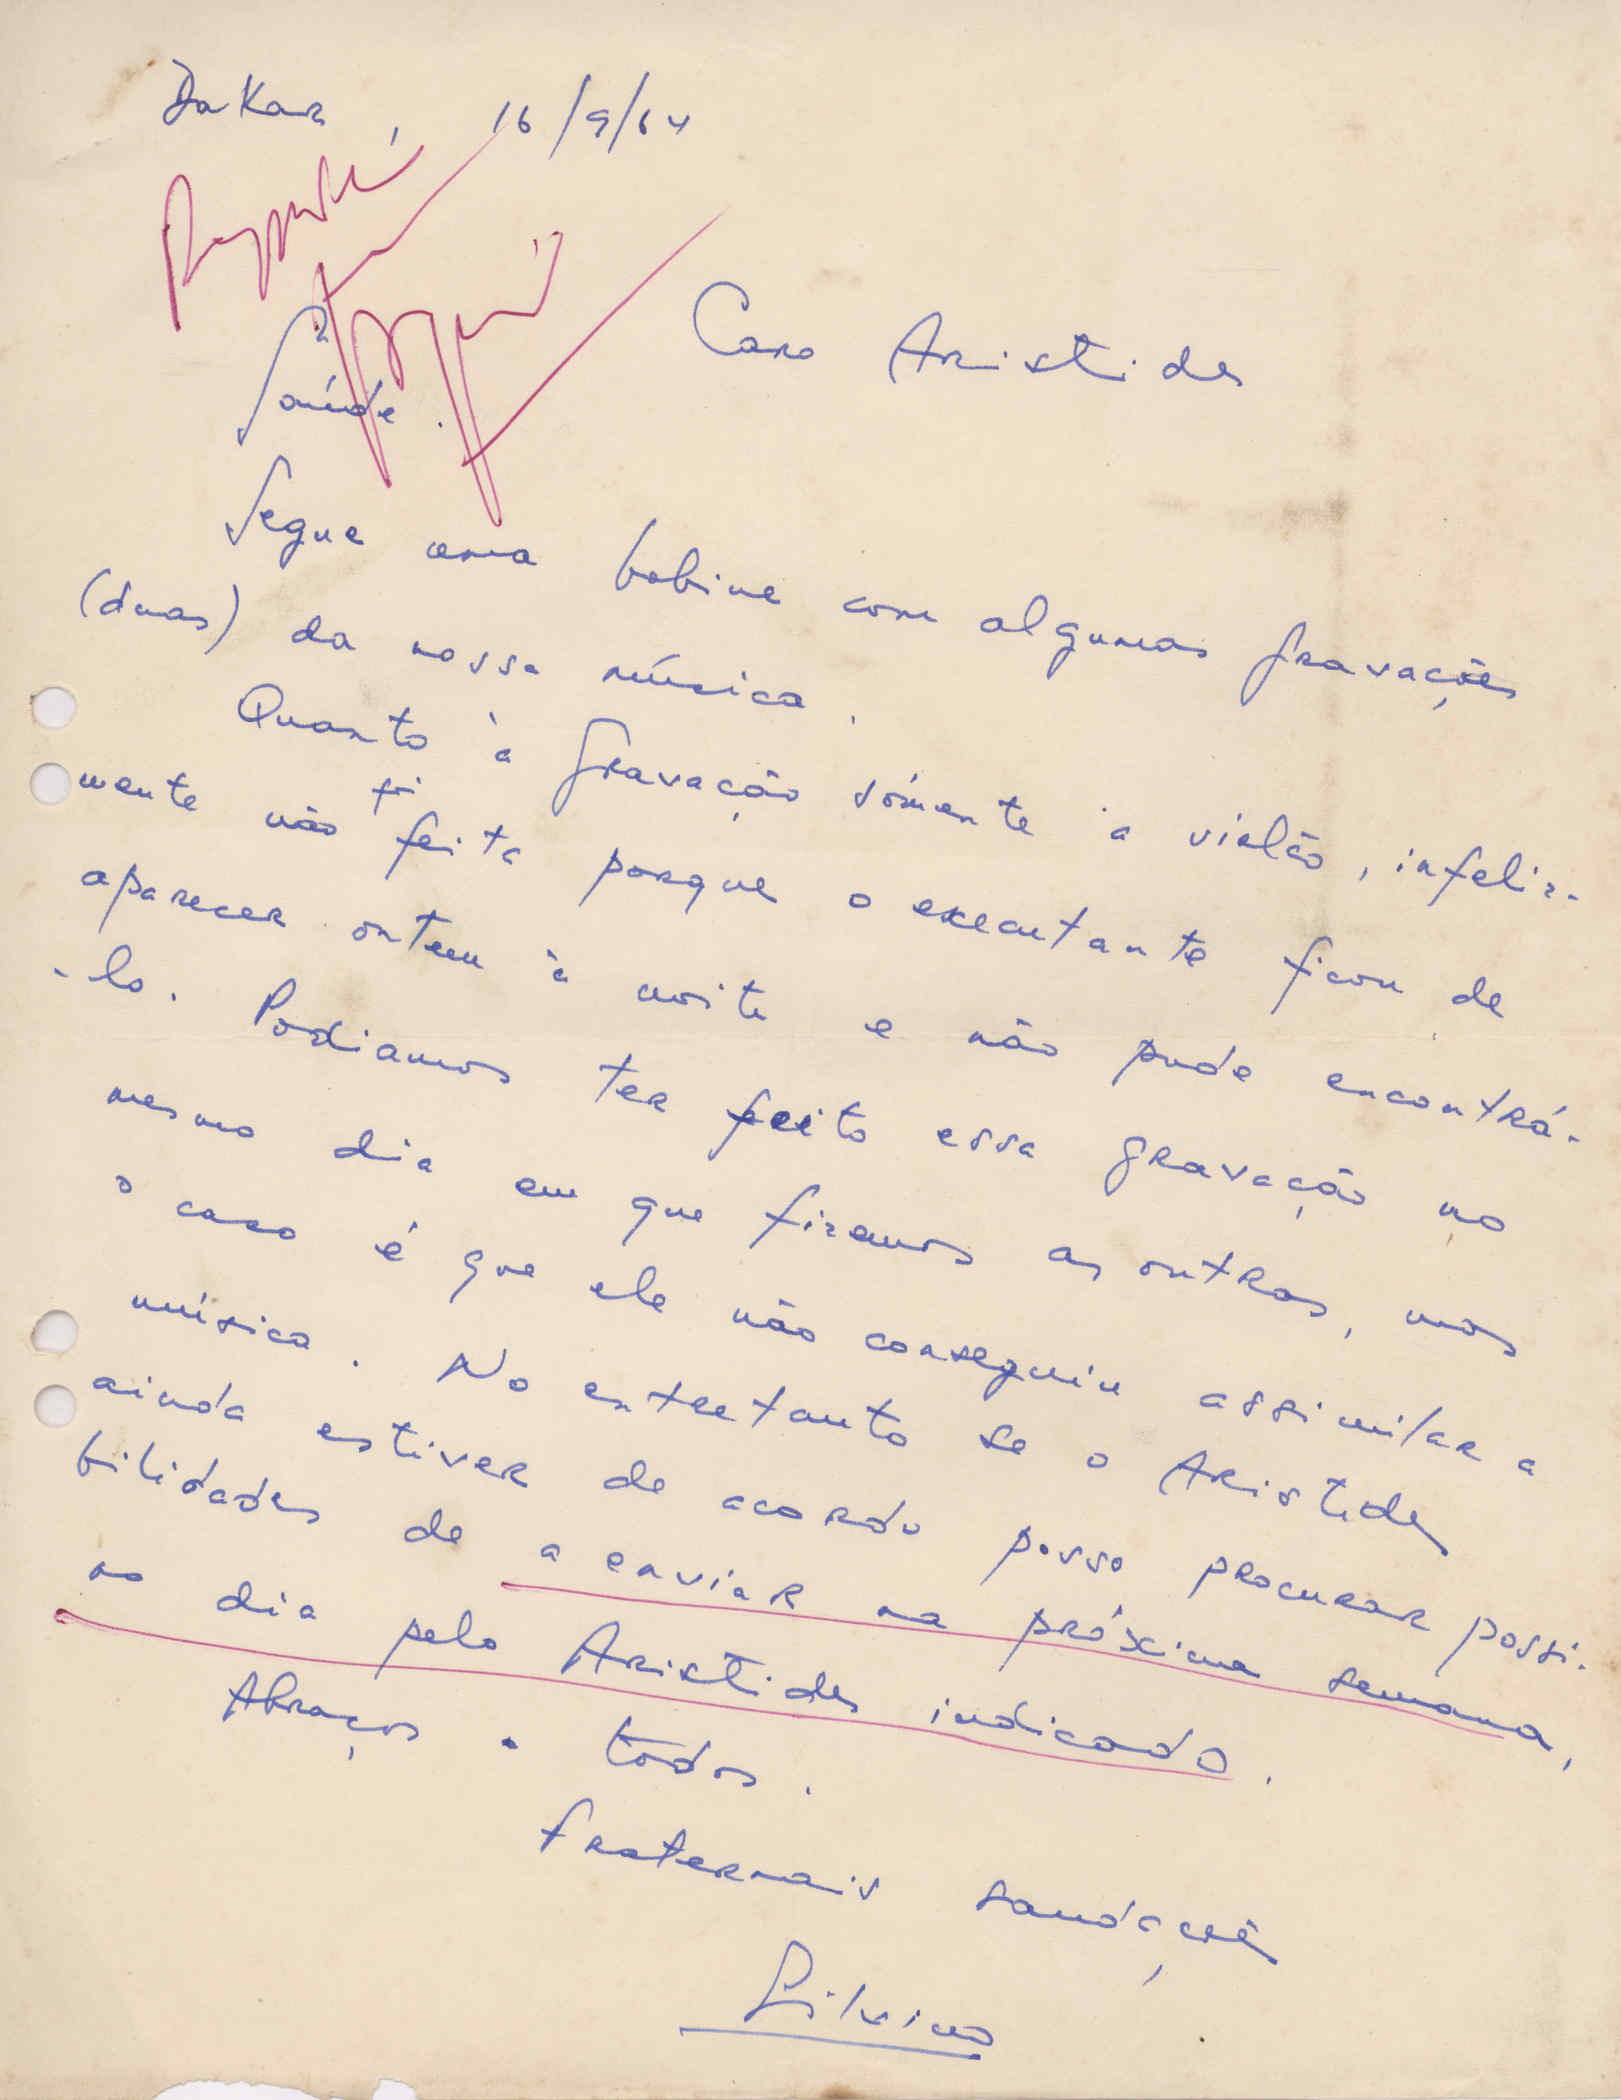 Dakar, 16/9/64
Caro Aristides
Saúde.
Segue uma bobine com algumas gravações
(duas) da nossa música.
Quanto à gravação sómente a violão, infeliz-
mente não foi feita porque o executante ficou de
aparecer ontem à noite e não pude encontrá-
-lo. Podiamos ter feito essa gravação no
mesmo dia em que fizemos as outras, mas
o caso é que ele não conseguiu assimilar a
música. No entretanto se o Aristides
ainda estiver de acordo posso procurar possi-
bilidades de a enviar na próxima semana,
no dia pelo Aristides indicado.
Abraços a todos.
Fraternais saudações
Silvino